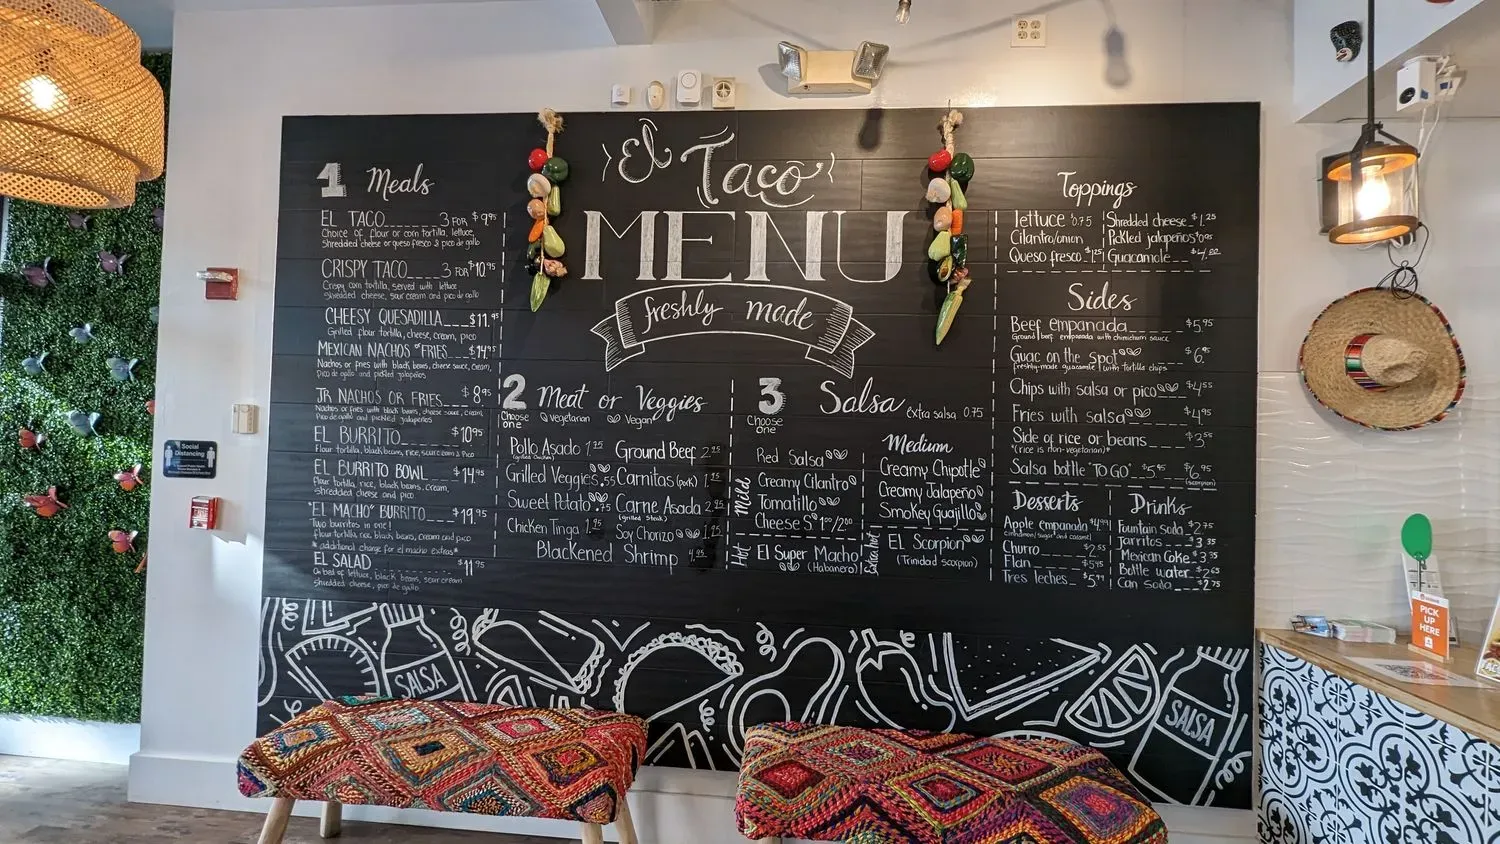 El Taco
MENU
freshly made
1 Meals
EL TACO 3 FOR $9.95
Choice of flour or corn tortilla, lettuce,
Shredded cheese or queso fresco & pico de gallo
CRISPY TACO 3 FOR $10.95
Crispy corn tortilla, served with lettuce
shredded cheese, sour cream and pico de gallo
CHEESY QUESADILLA $11.95
Grilled flour tortilla, cheese, cream, pico
MEXICAN NACHOS "FRIES $14.95
Nachos or fries with black beans, cheese sauce, cream,
Pico de gallo and pickled jalapeños
JR NACHOS OR FRIES $8.95
Nachos or fries with black beans, cheese sauce, cream,
Pico de gallo and pickled jalapeños
EL BURRITO $10.95
Flour tortilla, black beans, rice, sour cream & Pico
EL BURRITO BOWL $14.95
flour tortilla, rice, black beans, cream,
shredded cheese and pico
"EL MACHO" BURRITO $19.95
Two burritos in one!
flour tortilla, rice, black beans, cream and pico
*additional charge for el macho extras*
EL SALAD $11.95
On bed of lettuce, black beans, sour cream
shredded cheese, pico de gallo
2 Meat or Veggies
Choose one
Vegetarian Vegan
Pollo Asado 1.25
(grilled chicken)
Grilled Veggies .55
Sweet Potato .75
Chicken Tinga 1.95
Ground Beef 2.25
Carnitas (pork) 1.75
Carne Asada 2.95
(grilled steak)
Soy Chorizo 1.75
Blackened Shrimp 4.95
3 Salsa
Extra salsa 0.75
Choose one
Mild
Red Salsa
Creamy Cilantro
Tomatillo
Cheese S 1.00/2.00
Medium
Creamy Chipotle
Creamy Jalapeño
Smokey Guajillo
Hot
El Super Macho
(Habanero)
EL Scorpion
(Trinidad scorpion)
Toppings
lettuce 0.75
Cilantro/onion
Queso fresco $1.25
Shredded cheese $1.25
Pickled jalapeños
Guacamole
Sides
Beef empanada $5.95
Ground beef empanada with chimichurri sauce
Guac on the spot
freshly-made guacamole with tortilla chips
Chips with salsa or pico $4.55
Fries with salsa $4.95
Side of rice or beans $3.55
*(rice is non-vegetarian)*
Salsa bottle "TO GO" $5.95 $6.95
(scorpion)
Desserts
Apple empanada $4.99
Cinnamon/sugar and caramel
Churro $2.55
Flan $5.45
Tres leches $5.99
Drinks
Fountain soda $2.75
Jarritos $3.35
Mexican Coke $3.35
Bottle water $2.65
Can soda $2.75
SALSA
SALSA
Social
Distancing
PICK
UP
HERE